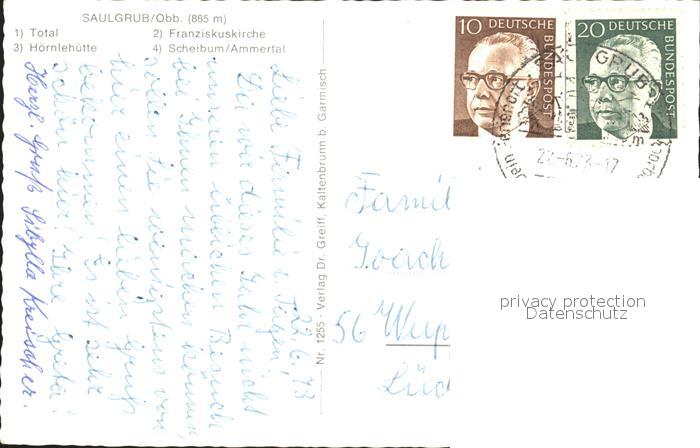 SAULGRUB/Obb. (885 m)
1) Total 2) Franziskuskirche
3) Hörnlehütte 4) Scheibum/Ammertal
22.6.73
Liebe Familie v.
Da wir dieses Jahr nicht
unseren üblichen Besuch
bei Ihnen machen können,
sollen Sie wenigstens von
hier einen lieben Gruß
bekommen! Es ist sehr
schön hier! Ihre Greta!
Herzl. Gruß Sibylla Kreischer.
Nr. 1255 - Verlag Dr. Greiff, Kaltenbrunn b. Garmisch
10 DEUTSCHE BUNDESPOST
20 DEUTSCHE BUNDESPOST
GRUB
22.-6.73-17
Famil
Joach
56 Wup
Lüd
privacy protection
Datenschutz